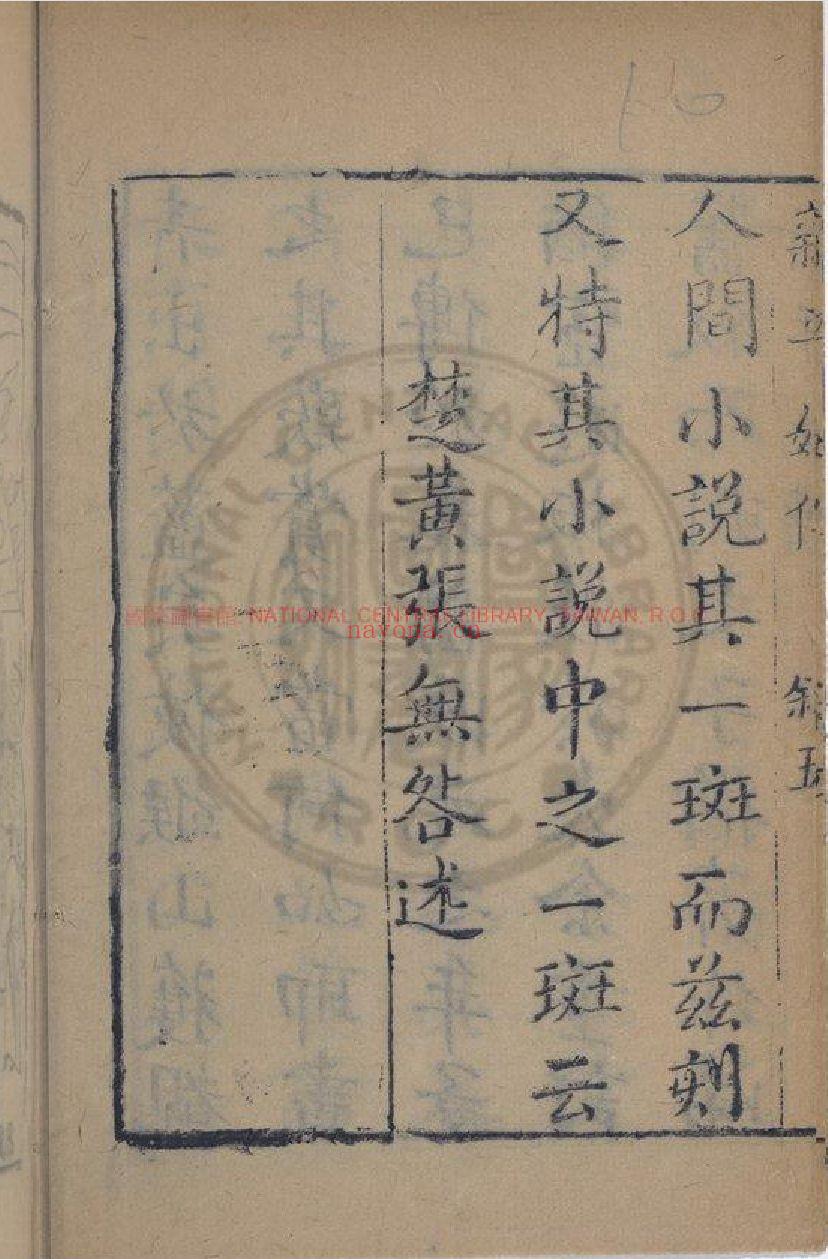 人間小說其一斑而茲刻
又特其小說中之一斑云
楚黃張無咎述
國家圖書館 NATIONAL CENTRAL LIBRARY, TAIWAN, R.O.C
nayona.cn